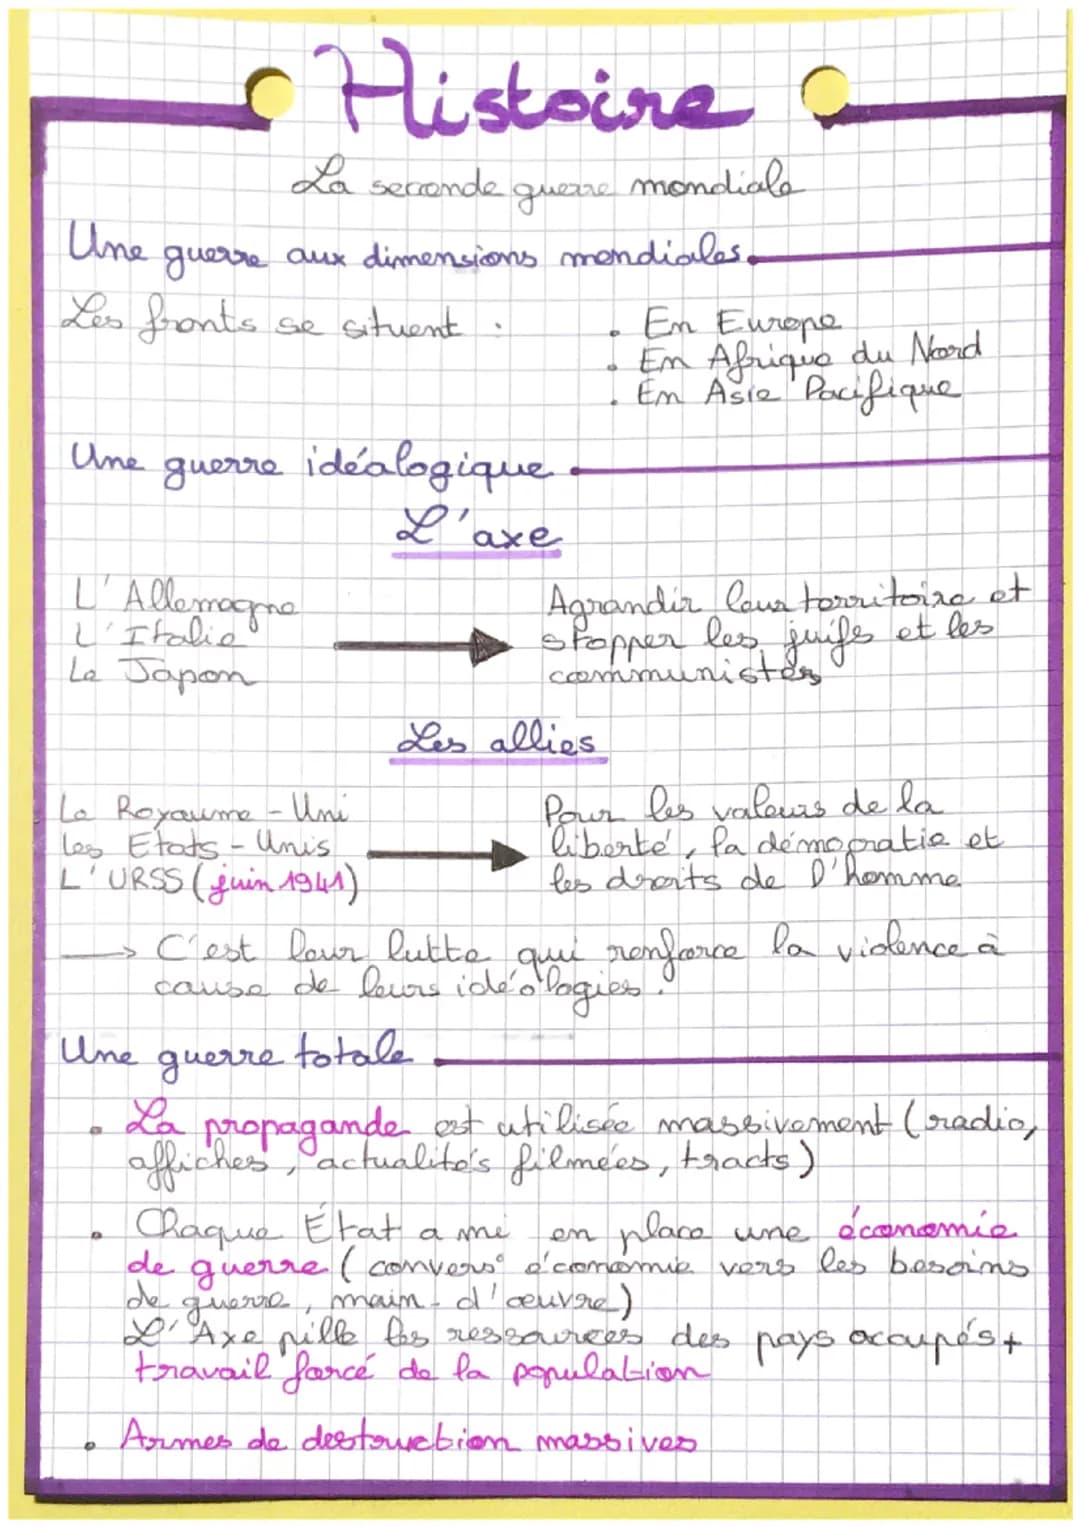 Histoire
La seconde guerre mondiale
Une guerre aux dimensions mondiales
Les fronts se situent :
• En Europe
• En Afrique du Nord
• En Asie Pacifique
Une guerre idéalogique
L'axe
L'Allemagne
L'Italie
Le Japon
Agrandir leur territoire et
stopper les juifs et les
communistes
Les allies
Le Royaume-Uni
Les Etats-Unis
L'URSS (juin 1941)
Pour les valeurs de la
liberté, la démocratie et
les droits de l'homme
→ C'est leur lutte qui renforce la violence à
cause de leurs idéologies.
Une guerre totale
• La propagande est utilisée massivement (radio,
affiches, actualités filmées, tracts)
• Chaque État a mi en place une économie
de guerre (convers° économie vers les besoins
de guerre, main-d'œuvre)
L'Axe pille les ressources des pays occupés +
travail forcé de la population
• Armes de destruction massives